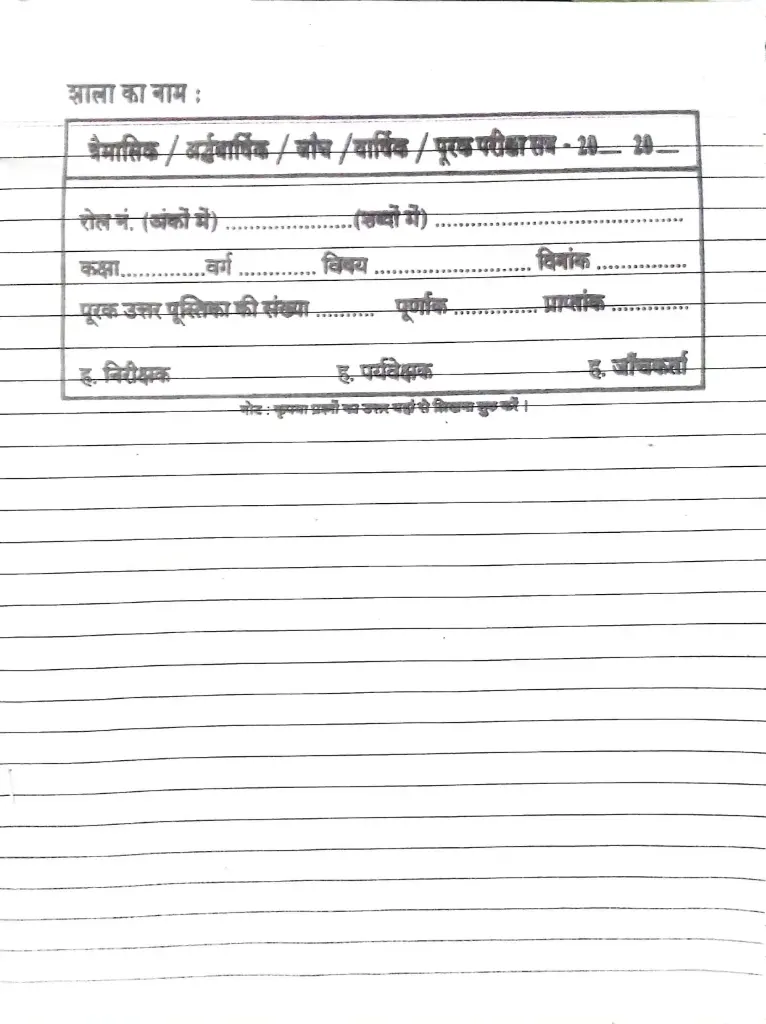 शाला का नाम :
त्रैमासिक / अर्द्धवार्षिक / जाँच / वार्षिक / पूरक परीक्षा सत्र - 20__ 20__
रोल नं. (अंकों में) ......................(शब्दों में) ...........................................
कक्षा...............वर्ग .............. विषय ............................ दिनांक ................
पूरक उत्तर पूस्तिका की संख्या .......... पूर्णांक ............... प्राप्तांक ..............
ह. निरीक्षक ह. पर्यवेक्षक ह. जाँचकर्ता
नोट : कृपया प्रश्नों का उत्तर यहाँ से लिखना शुरू करें ।